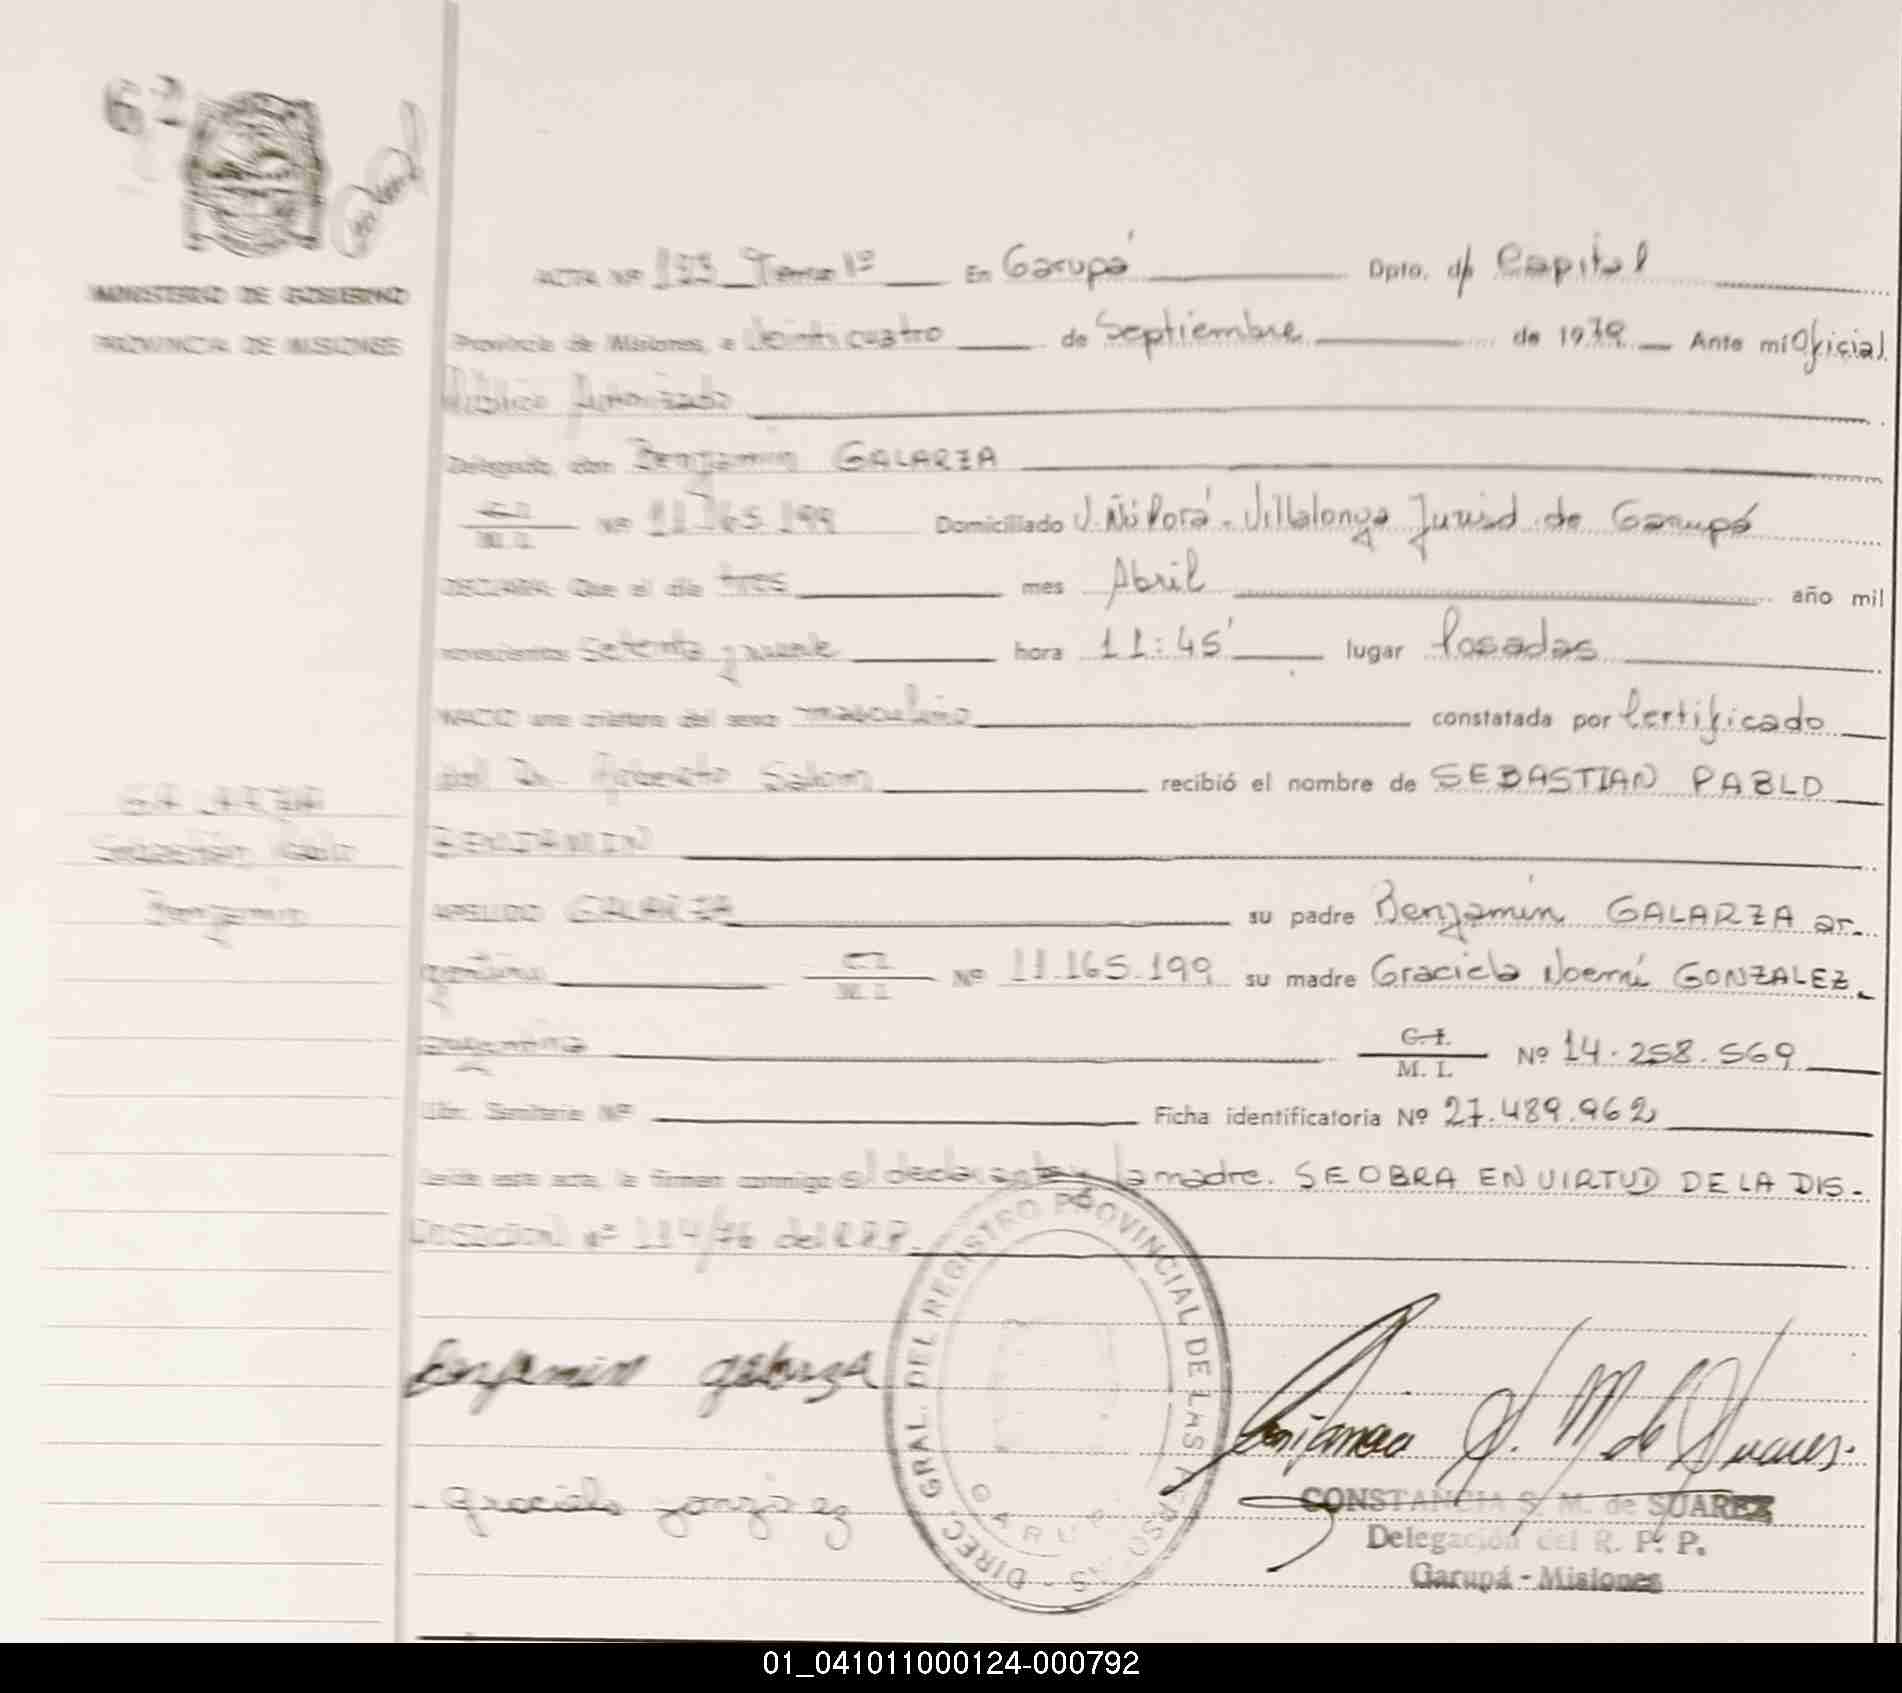 62
MINISTERIO DE GOBIERNO
PROVINCIA DE MISIONES
ACTA Nº 193 Tomo 1º En Garupá Dpto. d/ Capital
Provincia de Misiones, a Veinticuatro de Septiembre de 1979 Ante mi Oficial
Público Autorizado
Delegado, don Benjamin GALARZA
C.I.
M. I. Nº 11.165.199 Domiciliado V. Ñú Porá. Villalonga Jurisd. de Garupá
DECLARA: Que el día tres mes Abril año mil
novecientos Setenta y nueve hora 11:45' lugar Posadas
NACIO una criatura del sexo masculino constatada por Certificado
del Dr. Roberto Salom recibió el nombre de SEBASTIAN PABLO
BENJAMIN
APELLIDO GALARZA su padre Benjamin GALARZA ar-
gentino C.I.
M. I. Nº 11.165.199 su madre Graciela Noemí GONZALEZ.
argentina C.I.
M. I. Nº 14.258.569
Libr. Sanitaria Nº Ficha identificatoria Nº 27.489.962
Leída este acta, la firman conmigo el declarante y la madre. SE OBRA EN VIRTUD DE LA DIS-
POSICION Nº 114/76 del R.P.P.
GALARZA
Sebastián Pablo
Benjamin
Benjamin galarza
Graciela gonzalez
DIREC. GRAL. DEL REGISTRO PROVINCIAL DE LAS PERSONAS
GARUPA
Constancia S. M. de Suarez.
CONSTANCIA S. M. de SUAREZ
Delegación del R. P. P.
Garupá - Misiones
01_041011000124-000792